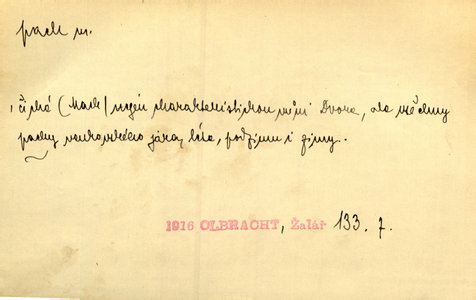 pach m.
čichá (Mach) nejen charakteristickou vůni Dvora, ale všechny
pachy venkovského jára, léta, podzimu i zimy.
1916 OLBRACHT, Žalář 133. 7.